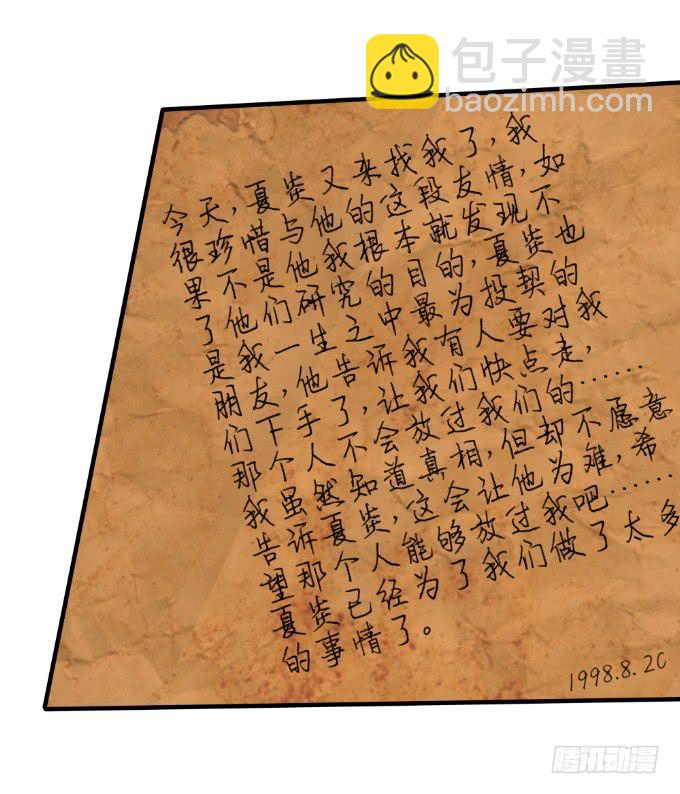 包子漫畫
baozimh.com
今天，夏炎又来找我了，我
很珍惜与他的这段友情，如
果不是他我根本就发现不
了他们研究的目的，夏炎也
是我一生之中最为投契的
朋友，他告诉我有人要对我
们下手了，让我们快点走，
那个人不会放过我们的……
我虽然知道真相，但却不愿意
告诉夏炎，这会让他为难，希
望那个人能够放过我吧……
夏炎已经为了我们做了太多
的事情了。
1998.8.20
腾讯动漫